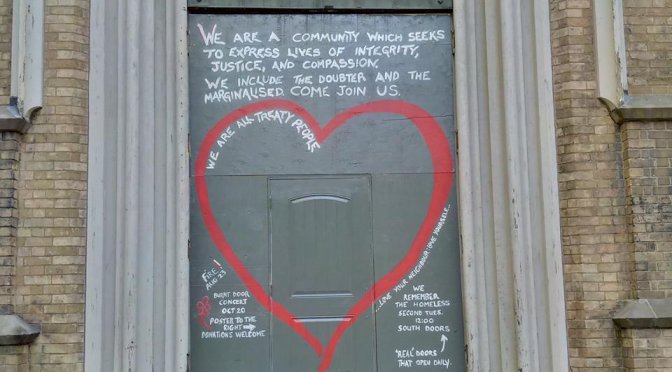 WE ARE A COMMUNITY WHICH SEEKS
TO EXPRESS LIVES OF INTEGRITY,
JUSTICE, AND COMPASSION.
WE INCLUDE THE DOUBTER AND THE
MARGINALISED. COME JOIN US.
WE ARE ALL TREATY PEOPLE
...LOVE YOUR NEIGHBOUR LOVE YOURSELF...
FIRE!
AUG 23
BURNT DOOR
CONCERT
OCT 20
POSTER TO THE
RIGHT →
DONATIONS WELCOME
WE
REMEMBER
THE HOMELESS
SECOND TUES.
12:00
SOUTH DOORS
"REAL" DOORS
THAT OPEN DAILY.